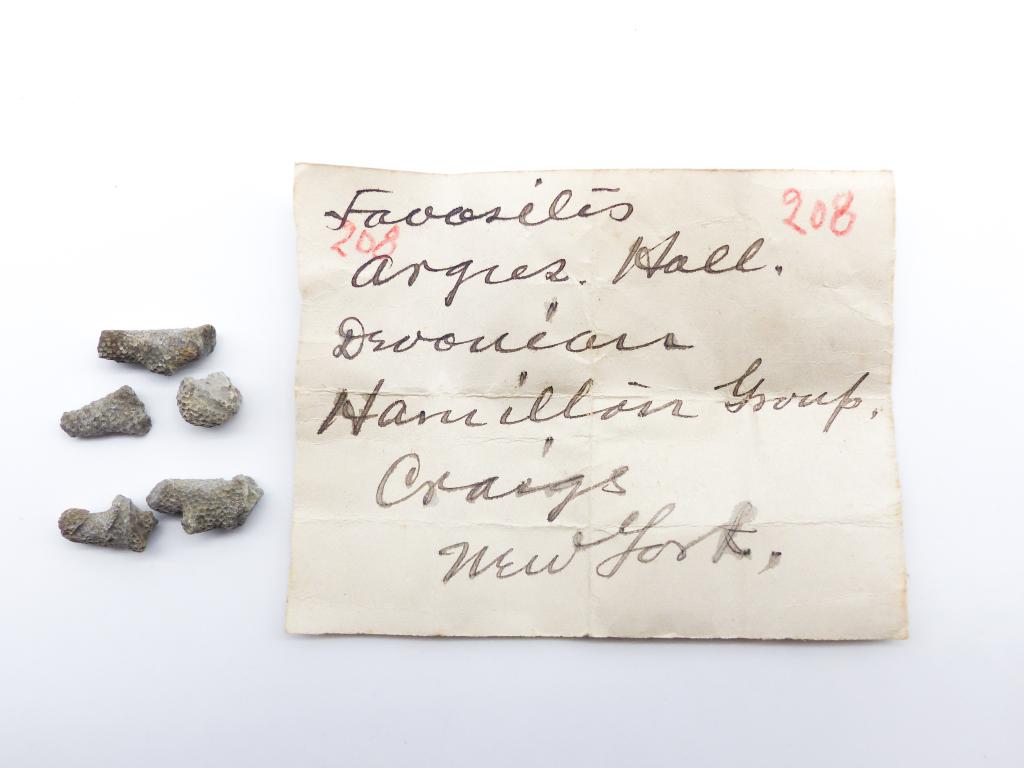 Favosites 208
208
argus. Hall.
Devonian
Hamilton Group.
Craigs
New York.